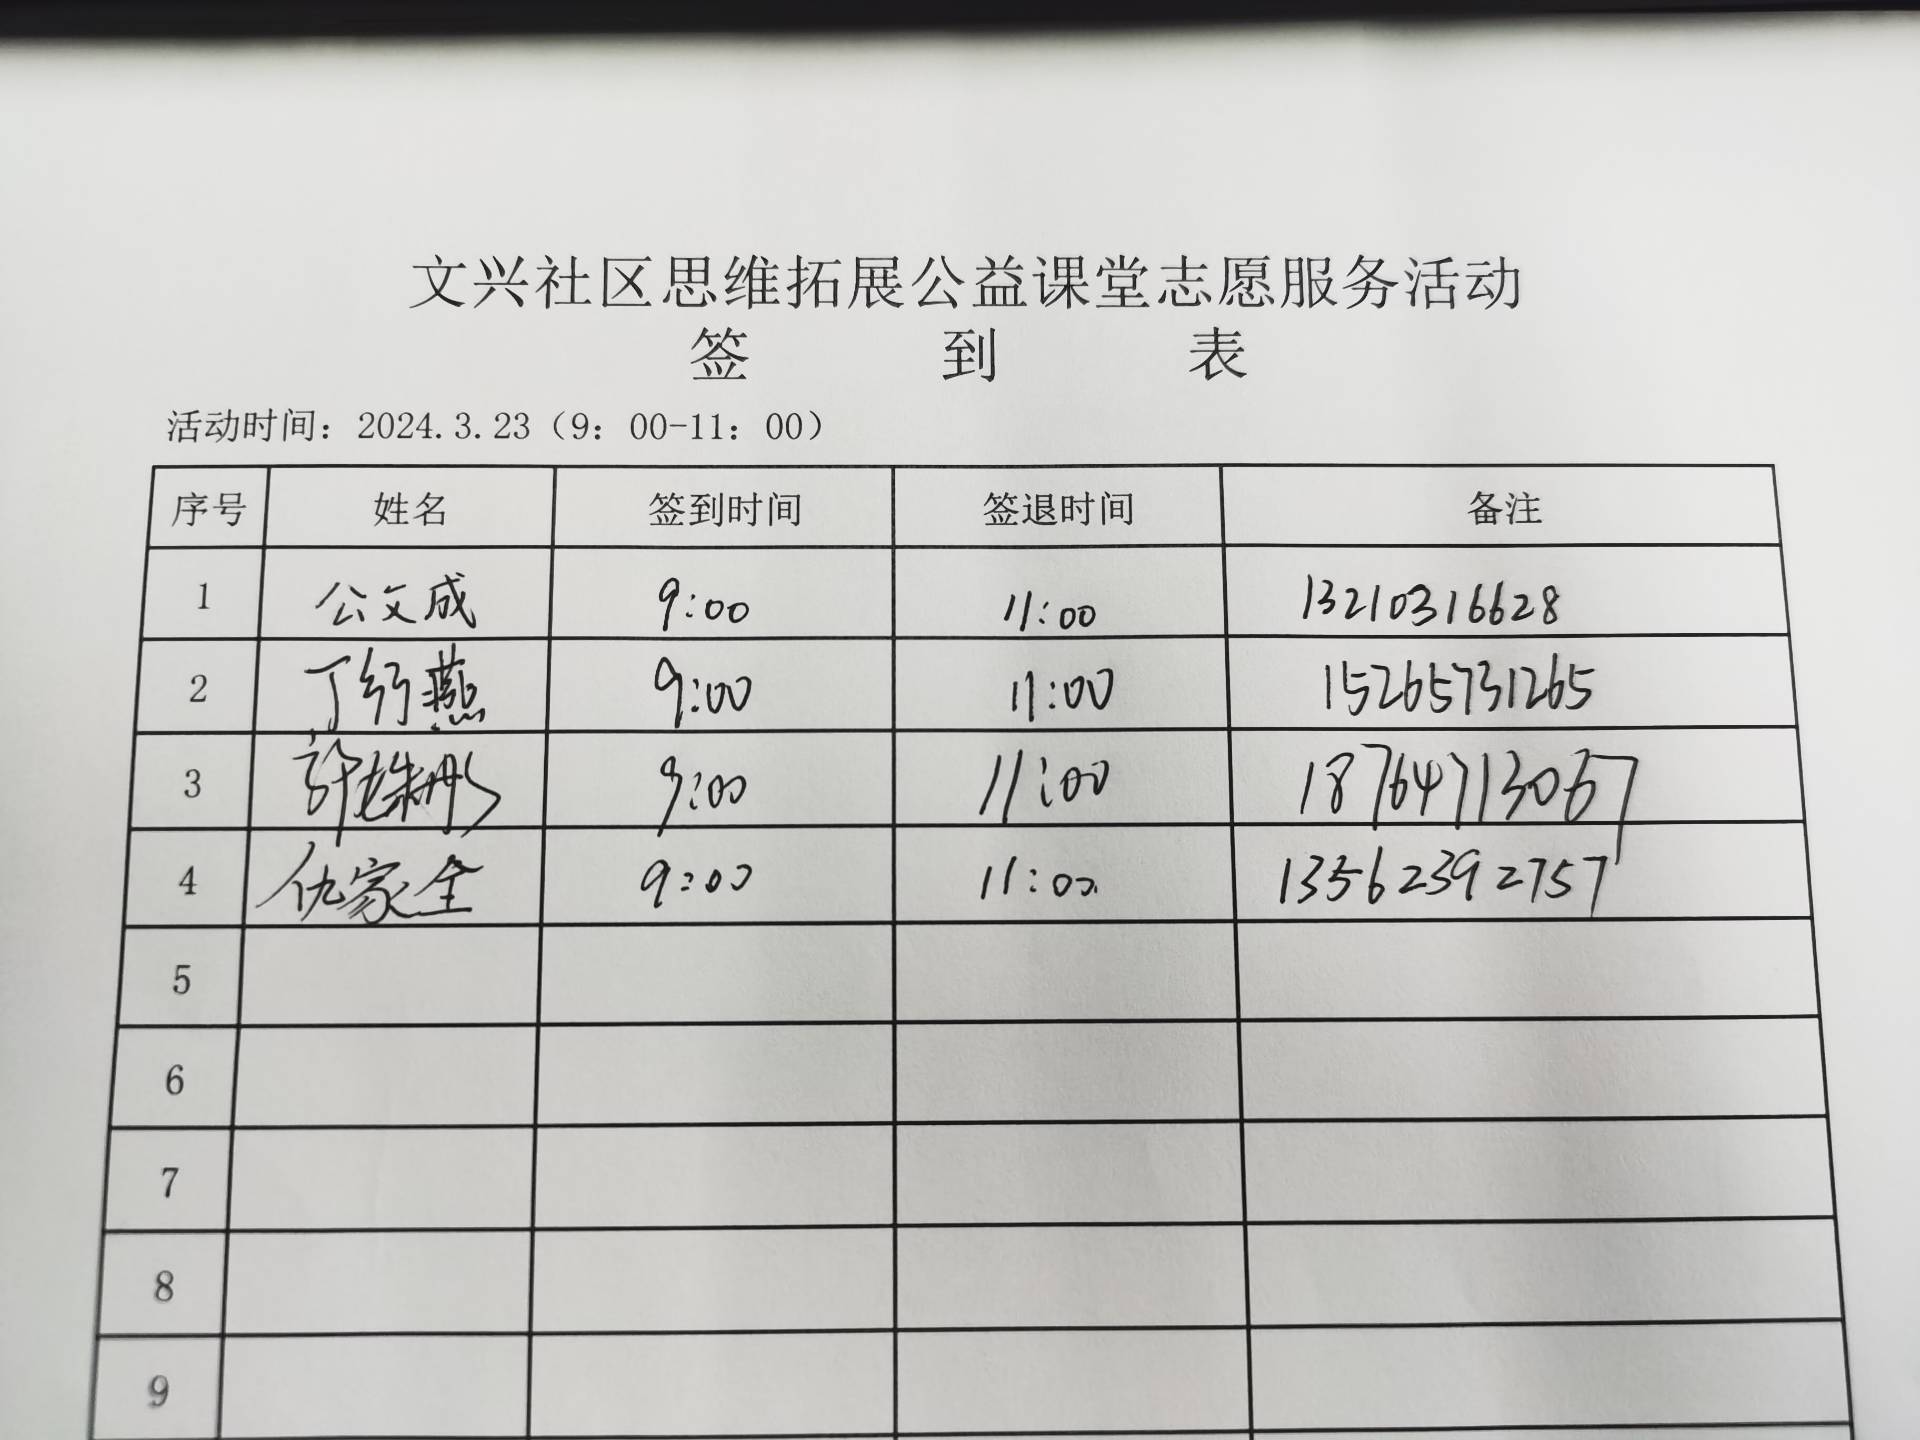 文兴社区思维拓展公益课堂志愿服务活动
签 到 表
活动时间：2024.3.23（9：00-11：00）
序号 姓名 签到时间 签退时间 备注
1 公文成 9:00 11:00 13210316628
2 丁 燕 9:00 11:00 15265731265
3 许 彤 9:00 11:00 18764713067
4 仇家全 9:00 11:00 13562392757
5
6
7
8
9